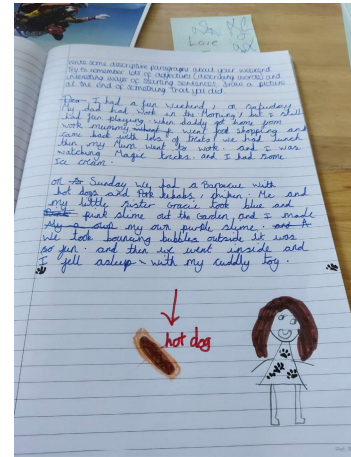 Love
Write some descriptive paragraphs about your weekend
Try to remember lots of adjectives (describing words) and
interesting ways of starting sentences. Draw a picture
at the end of something that you did
I had a fun weekend, on saturday
My dad had work in the Morning, but I still
had fun playing. when daddy got home from
work mummy went food shopping and
came back with lots of treats. we had lunch
then my Mum went to work. and I was
watching Magic tricks. and I had some
Ice cream.
on Sunday we had a Barbecue with
hot dogs and Pork kebabs, chiken. Me and
my little sister Gracie took blue and
pink slime out the Garden, and I made
my own purple slyme.
We took bouncing bubbles outside it was
so fun. and then we went inside and
I fell asleep with my cuddly toy.
hot dog